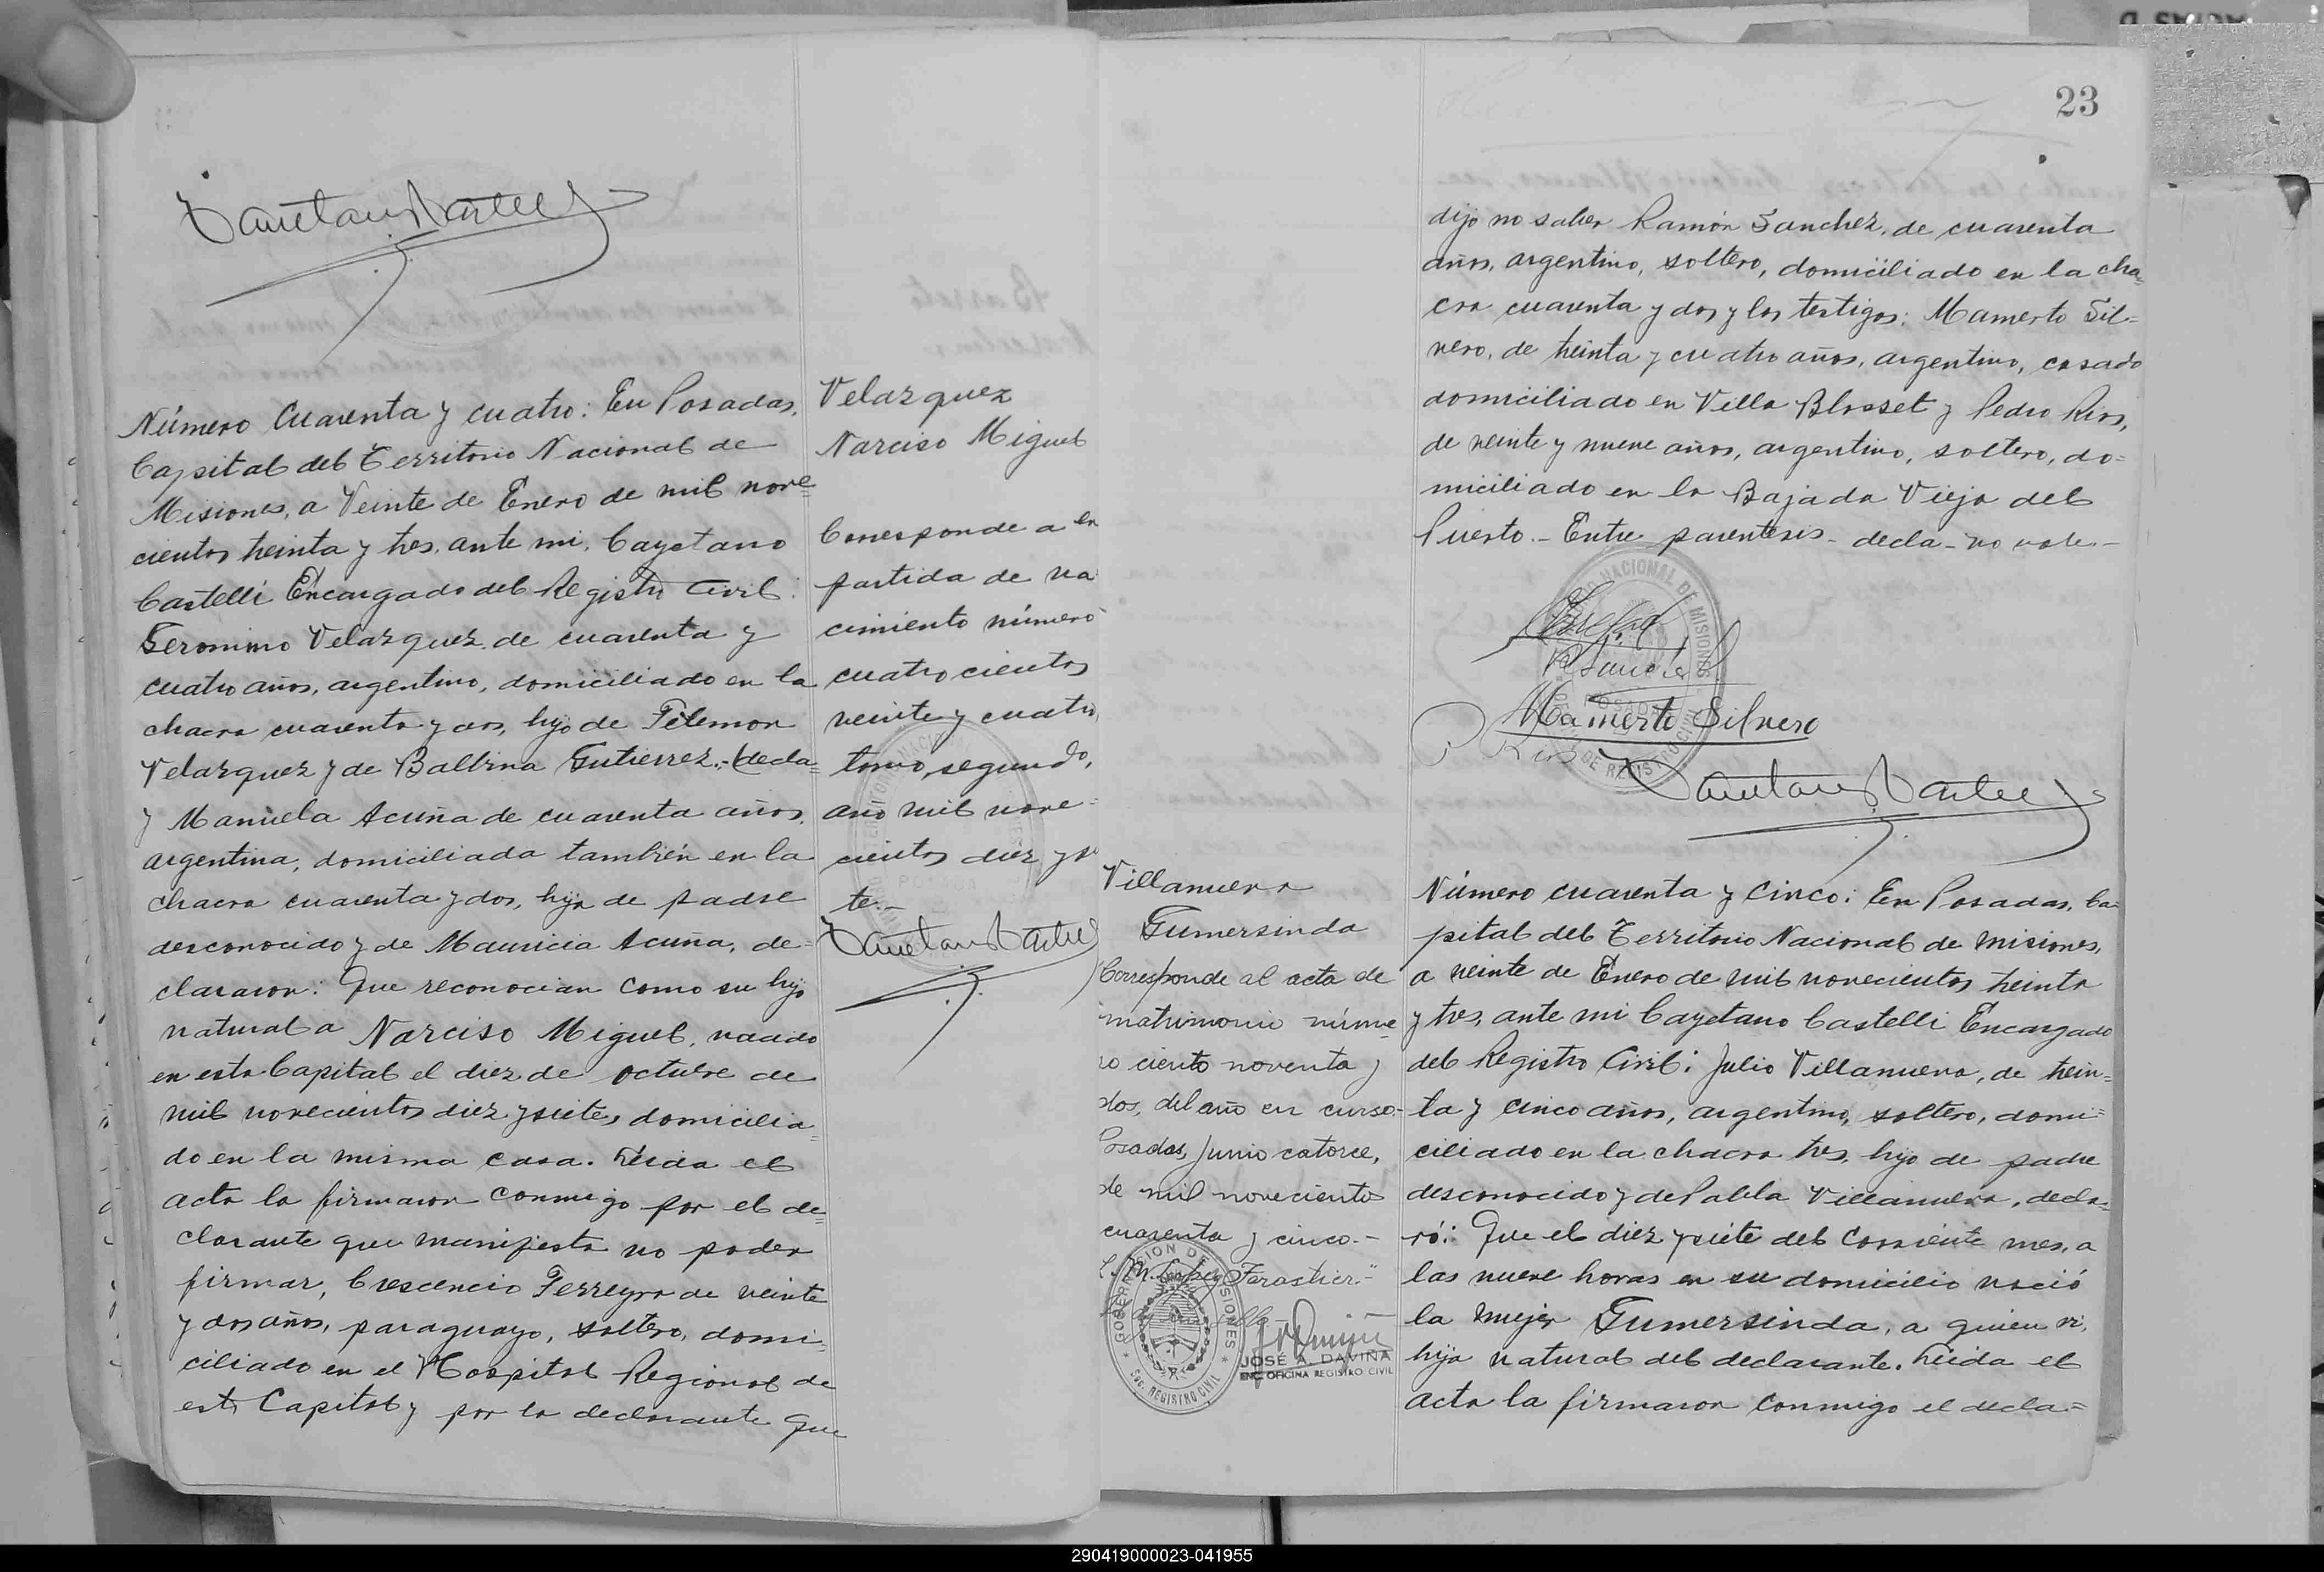 Cayetano Castelli
Número Cuarenta y cuatro: En Posadas,
Capital del Territorio Nacional de
Misiones, a Veinte de Enero de mil nove=
cientos treinta y tres, ante mi, Cayetano
Castelli Encargado del Registro Civil:
Geronimo Velazquez, de cuarenta y
cuatro años, argentino, domiciliado en la
chacra cuarenta y dos, hijo de Filemon
Velazquez y de Balbina Gutierrez.-(decla=
y Manuela Acuña de cuarenta años,
argentina, domiciliada también en la
chacra cuarenta y dos, hija de padre
desconocido y de Mauricia Acuña, de=
clararon: Que reconocian como su hijo
natural a Narciso Miguel, nacido
en esta Capital el diez de octubre de
mil novecientos diez y siete, domicilia=
do en la misma casa. Leida el
acta la firmaron conmigo por el de=
clarante que manifiesta no poder
firmar, Crescencio Ferreyra de veinte
y dos años, paraguayo, soltero, domi=
ciliado en el Hospital Regional de
esta Capital y por la declarante que
Velazquez
Narciso Miguel
Corresponde a la
partida de na
cimiento número
cuatrocientos
veinte y cuatro,
tomo segundo,
año mil nove=
cientos diez y sie
te.-
Cayetano Castelli
23
dijo no saber Ramón Sanchez, de cuarenta
años, argentino, soltero, domiciliado en la cha=
cra cuarenta y dos y los testigos: Mamerto Sil=
vero, de treinta y cuatro años, argentino, casado
domiciliado en Villa Blosset y Pedro Rios,
de veinte y nueve años, argentino, soltero, do=
miciliado en la Bajada Vieja del
Puerto.- Entre parentesis - decla - no vale.-
R Sanchez
Mamerto Silvero
P Rios
Cayetano Castelli
Villanueva
Gumersinda
Corresponde al acta de
matrimonio núme=
ro ciento noventa y
dos, del año en curso.-
Posadas, Junio catorce,
de mil novecientos
cuarenta y cinco.-
GOBERNACION DE MISIONES
SEC. REGISTRO CIVIL
JOSÉ A. DAVIÑA
ENC. OFICINA REGISTRO CIVIL
Número cuarenta y cinco: En Posadas, Ca=
pital del Territorio Nacional de Misiones,
a veinte de Enero de mil novecientos treinta
y tres, ante mi Cayetano Castelli Encargado
del Registro Civil: Julio Villanueva, de trein=
ta y cinco años, argentino, soltero, domi=
ciliado en la chacra tres, hijo de padre
desconocido y de Pabla Villanueva, decla=
ró: Que el diez y siete del corriente mes, a
las nueve horas en su domicilio nació
la mujer Gumersinda, a quien vi,
hija natural del declarante. Leida el
acta la firmaron conmigo el decla=
290419000023-041955